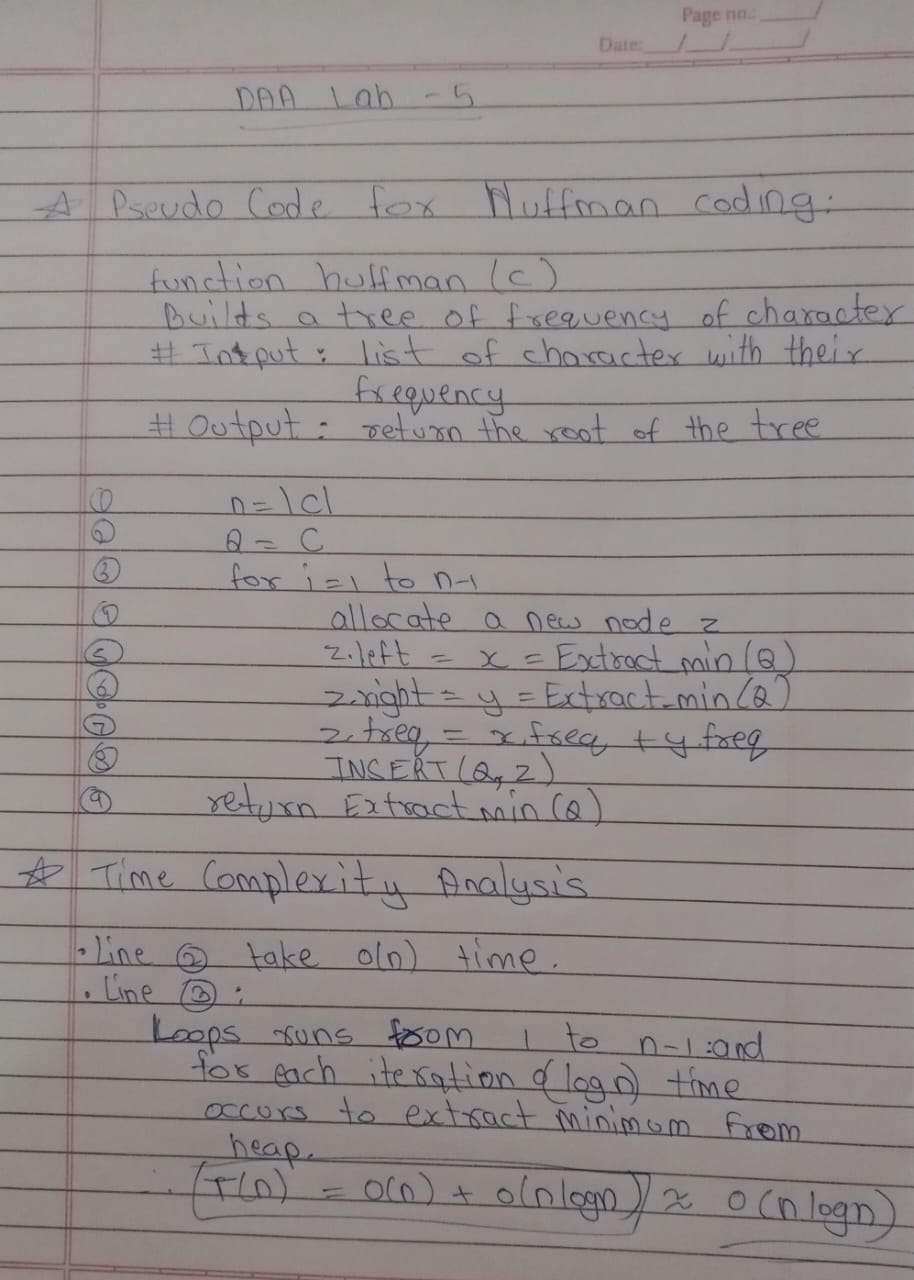 Page no.:
Date:
DAA Lab - 5
☆ Pseudo Code for Huffman coding:
function huffman (c)
Builds a tree of frequency of character
# Intput : list of character with their
frequency
# Output : return the root of the tree
① n = |c|
② Q = C
③ for i=1 to n-1
④ allocate a new node z
⑤ z.left = x = Extract_min(Q)
⑥ z.right = y = Extract_min(Q)
⑦ z.freq = x.freq + y.freq
⑧ INSERT(Q, z)
⑨ return Extract_min(Q)
☆ Time Complexity Analysis
• Line ② take o(n) time.
• Line ③ :
Loops runs from 1 to n-1 :and
for each iteration o(logn) time
occurs to extract minimum from
heap.
T(n) = o(n) + o(nlogn) ≈ o(nlogn)